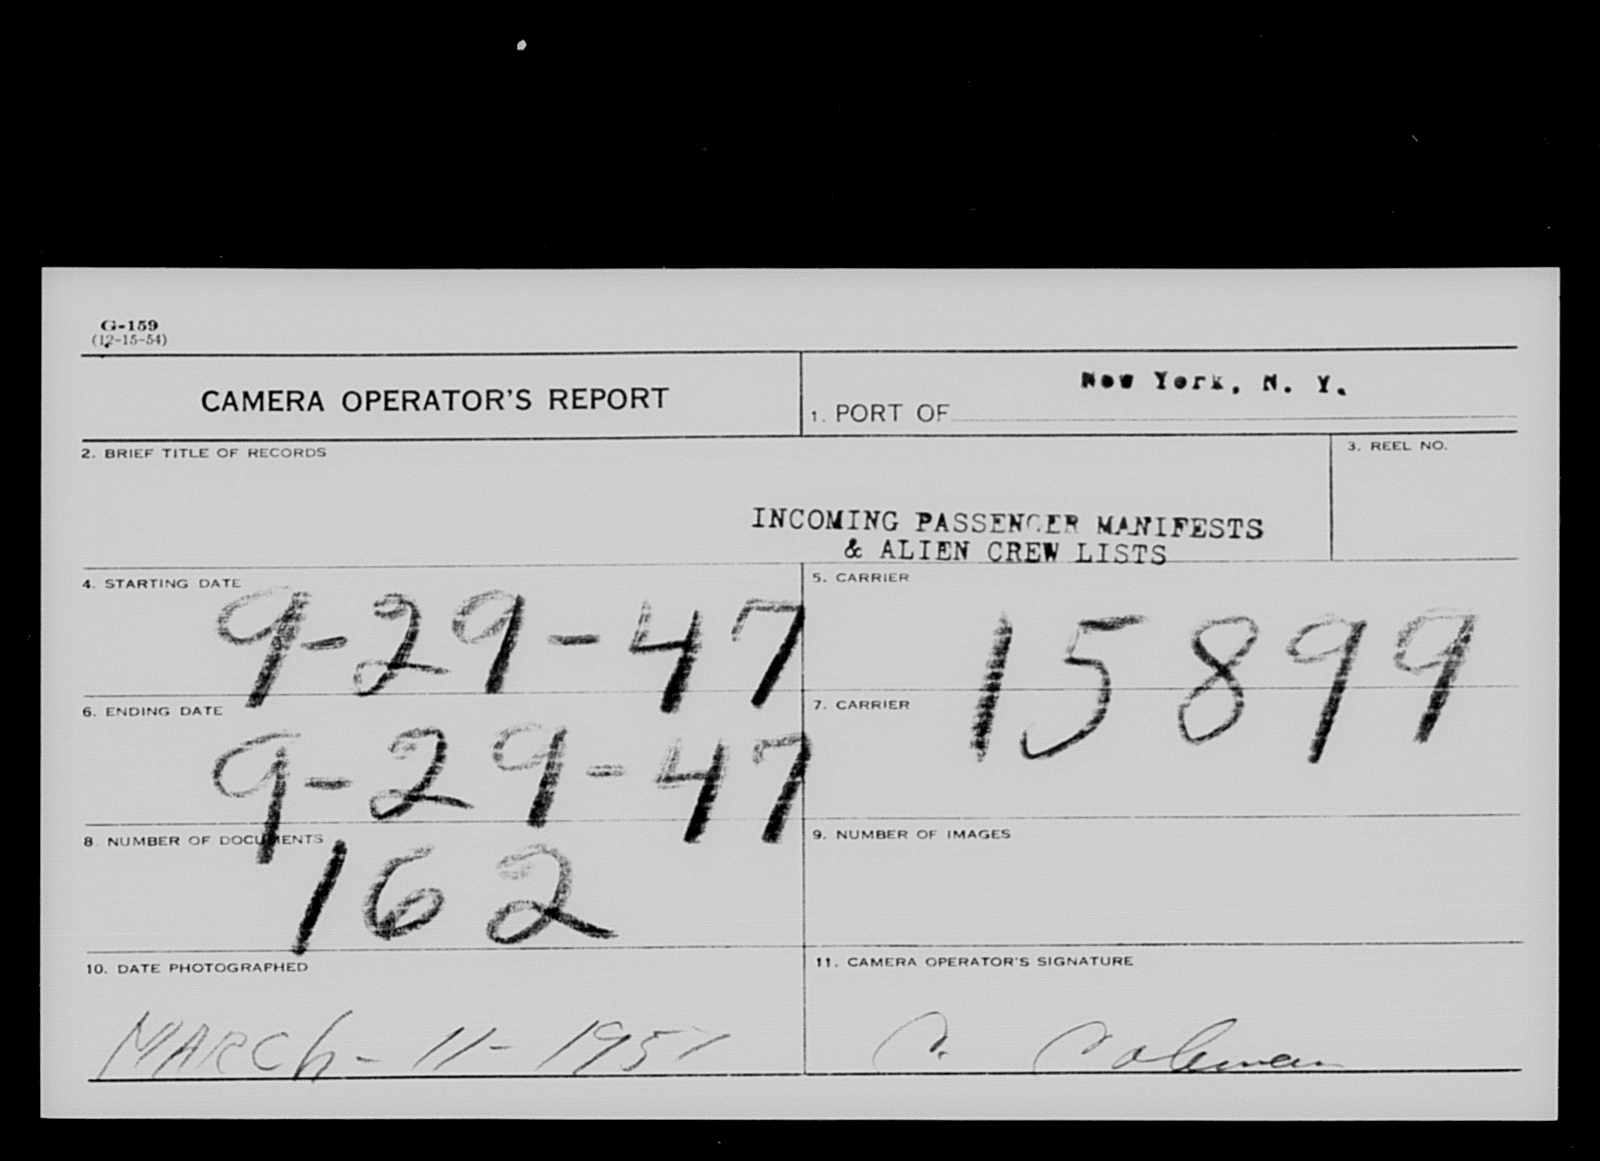 G-159
(12-15-54)
CAMERA OPERATOR'S REPORT
New York, N. Y.
1. PORT OF
2. BRIEF TITLE OF RECORDS
3. REEL NO.
INCOMING PASSENGER MANIFESTS
& ALIEN CREW LISTS
4. STARTING DATE
9-29-47
5. CARRIER
15899
6. ENDING DATE
9-29-47
7. CARRIER
8. NUMBER OF DOCUMENTS
162
9. NUMBER OF IMAGES
10. DATE PHOTOGRAPHED
MARCh-11-1957
11. CAMERA OPERATOR'S SIGNATURE
C. Coleman